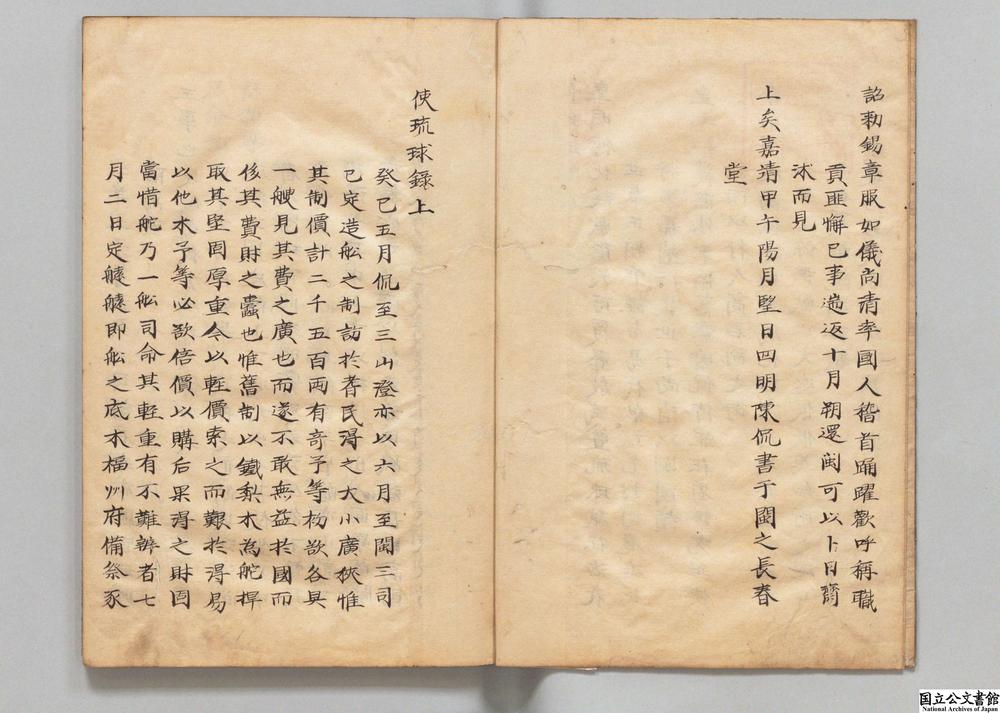 詔勑錫章服如儀尚清率國人稽首踊躍歡呼稱職
貢匪懈已事遄返十月朔還閩可以卜日齋
沐而見
上矣嘉靖甲午陽月朢日四明陳侃書于閩之長春
堂
使琉球錄上
癸巳五月侃至三山澄亦以六月至閩三司
已定造舩之制訪於耆民淂之大小廣狹惟
其制價計二千五百兩有奇予等初欲各具
一艘見其費之廣也而遂不敢無益於國而
侈其費財之蠹也惟舊制以鐵梨木為舵捍
取其堅固厚重今以輕價索之而艱於淂易
以他木予等必欲倍價以購后果淂之財固
當惜舵乃一舩司命其輕重有不難辨者七
月二日定艤艤即舩之底木福州府備祭豕
国立公文書館
National Archives of Japan